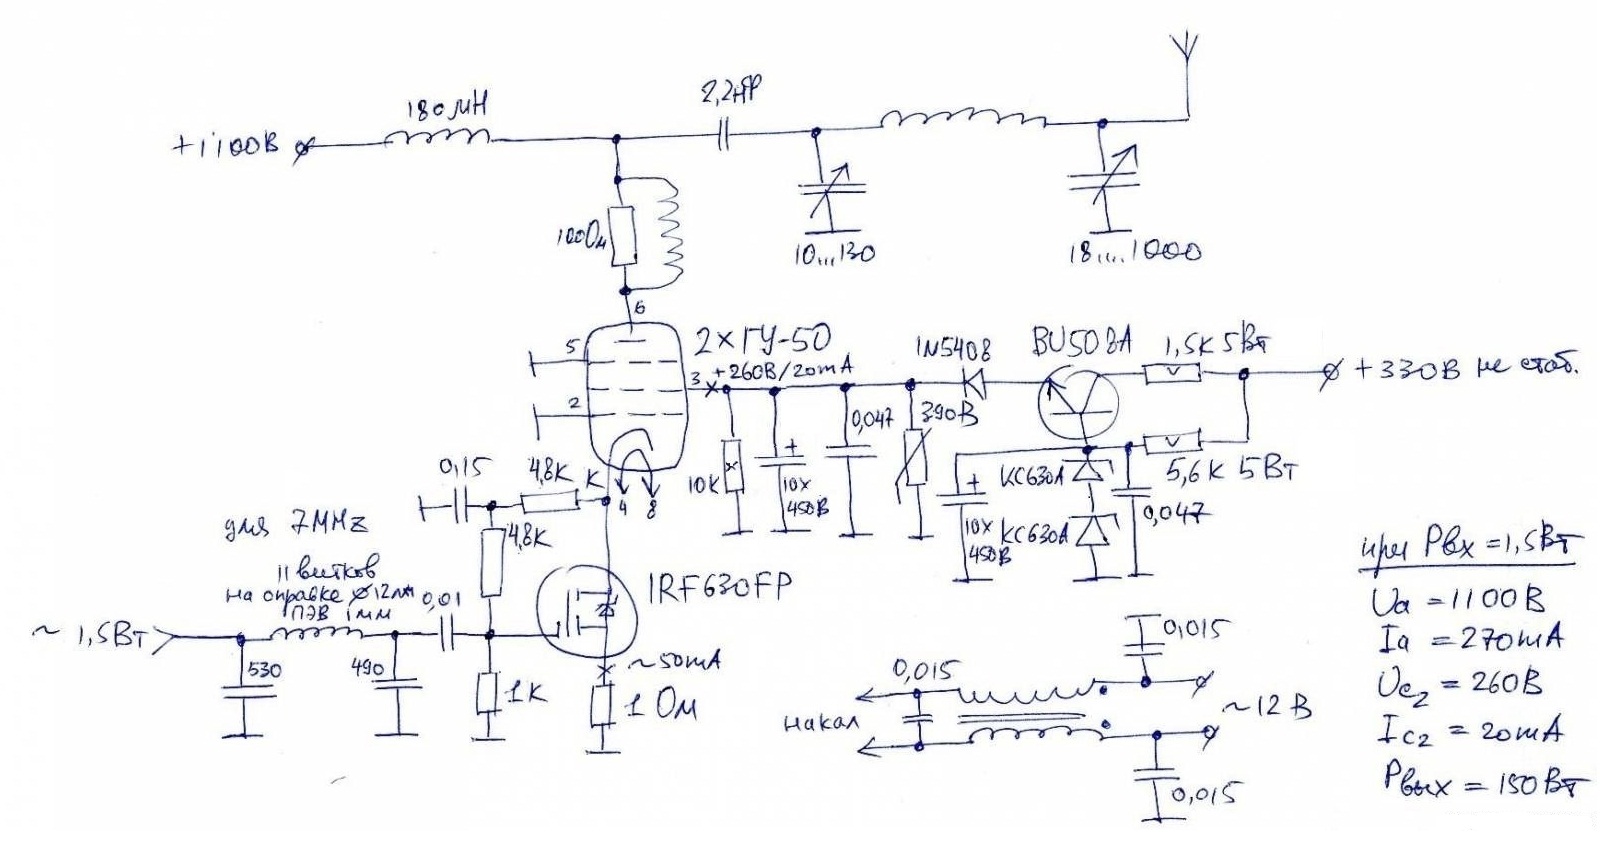 180 мН
2,2нФ
+1100В
100Ом
10...130
18....1000
6
5
2×ГУ-50
3
+260В/20mA
1N5408
BU508A
1,5К 5Вт
+330В не стаб.
2
0,047
390В
0,15
4,8К
К
4
8
10К
+
10х
450В
+
10х
450В
КС630А
КС630А
5,6К 5Вт
0,047
для 7MHz
4,8К
11 витков
на оправке ⌀12мм
ПЭВ 1мм
0,01
IRF630FP
~ 1,5Вт
530
490
1К
~50mA
1 Ом
0,015
0,015
накал
~12 В
0,015
при Рвх =1,5Вт
Uа =1100В
Iа = 270mA
Uс2 = 260В
Iс2 = 20mA
Рвых = 150Вт